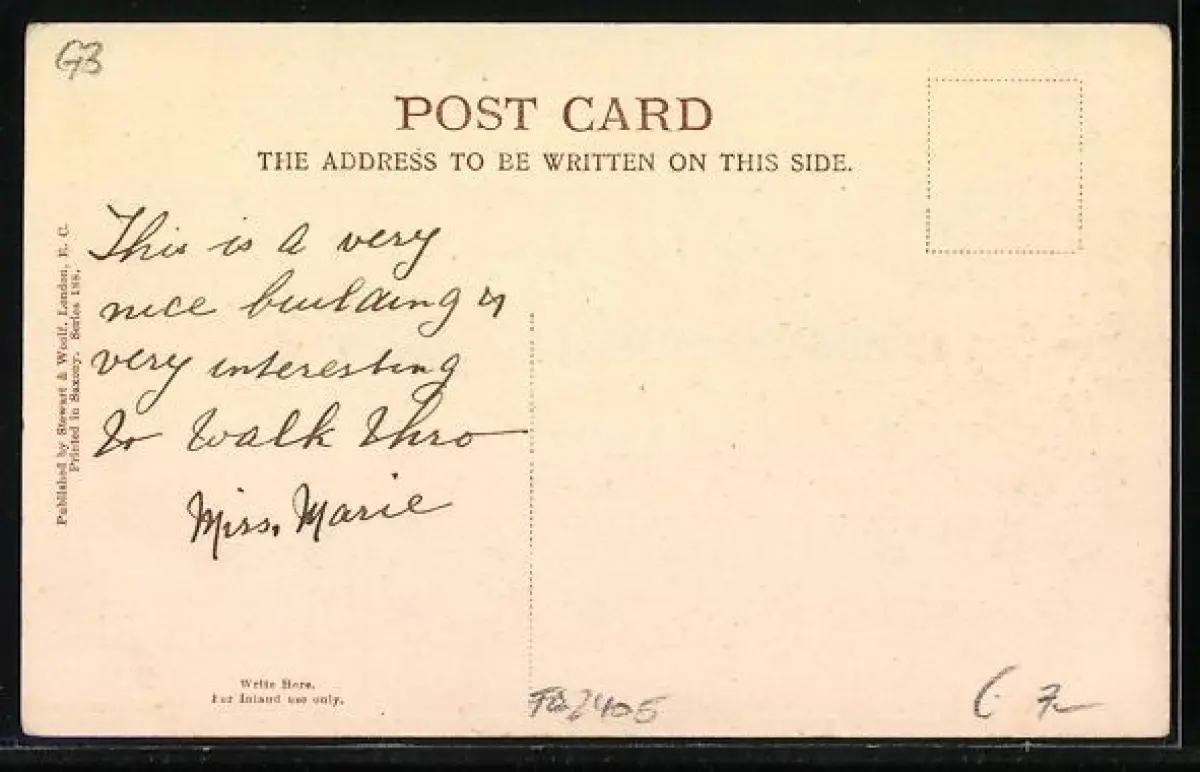 G3
POST CARD
THE ADDRESS TO BE WRITTEN ON THIS SIDE.
This is a very
nice building &
very interesting
to walk thro
Miss. Marie
Published by Stewart & Woolf, London, E. C.
Printed in Saxony. Series 188.
Write Here.
For Inland use only.